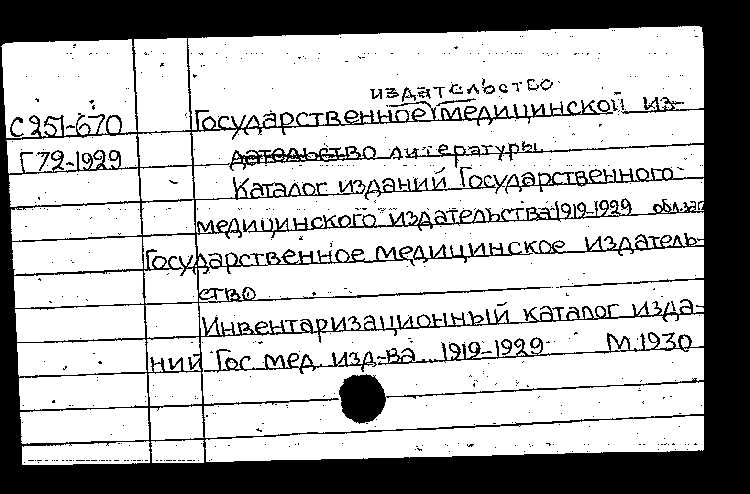 издательство
С251-670 Государственное медицинской из-
Г72-1929 дательство литературы
Каталог изданий Государственного
медицинского издательства 1919-1929 обл.загл
Государственное медицинское издатель-
ство
Инвентаризационный каталог изда-
ний Гос мед. изд-ва. 1919-1929 М.1930